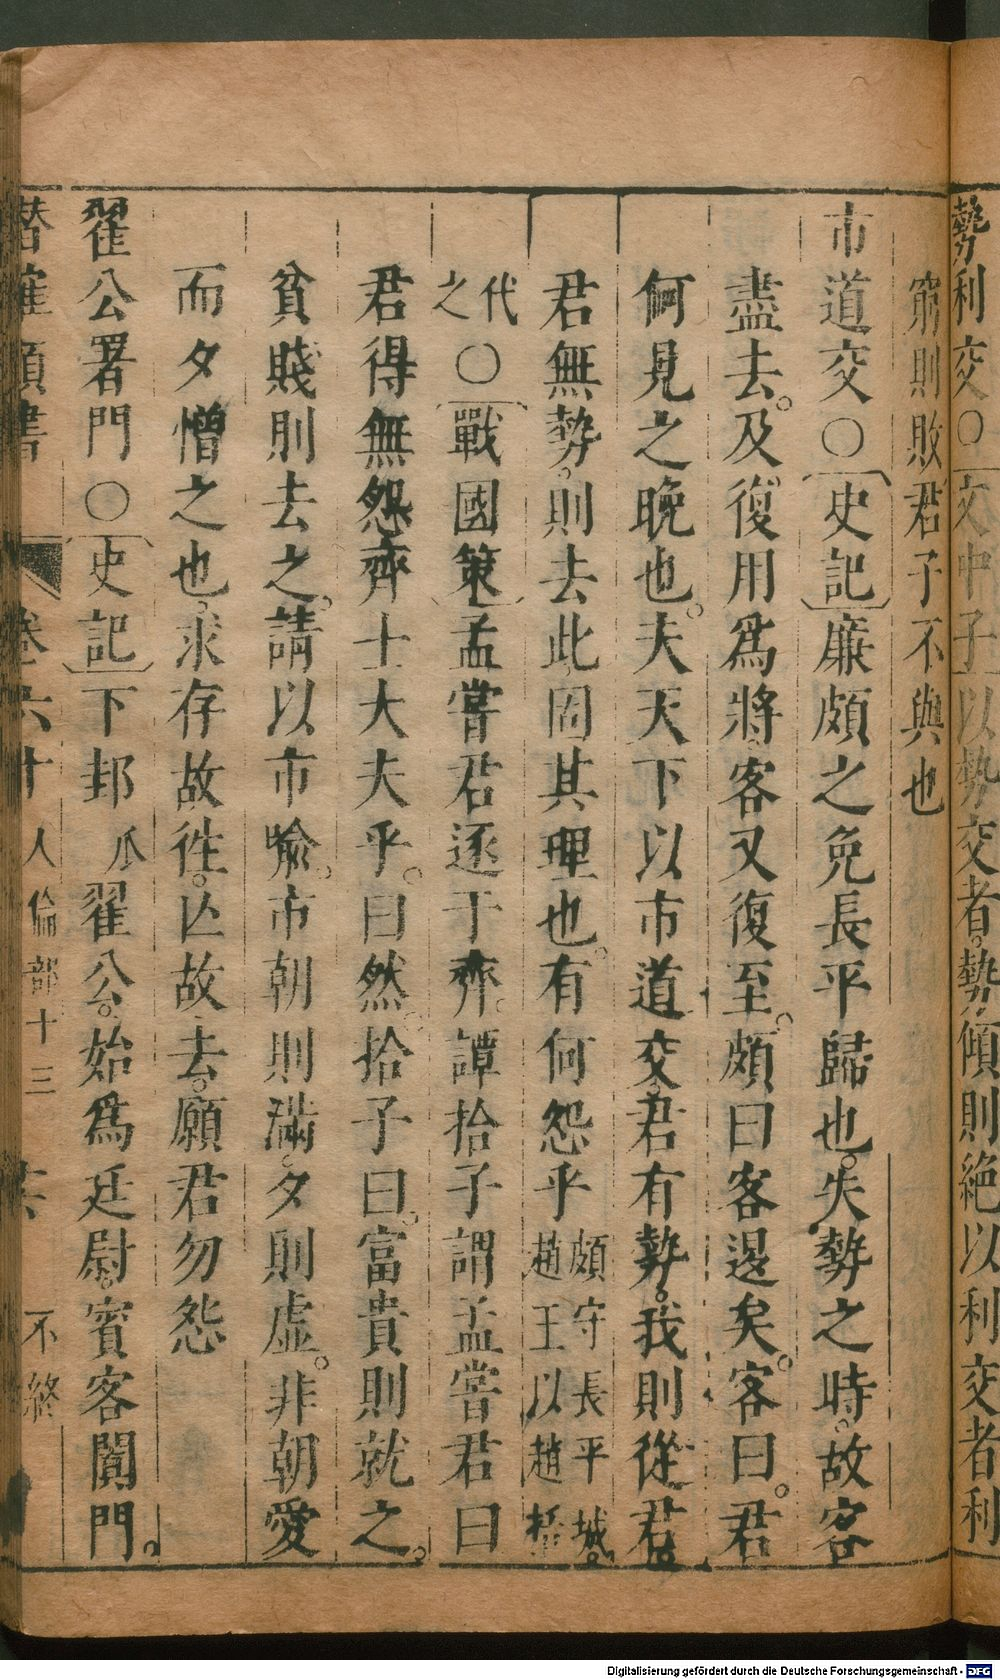 勢利交○文中子以勢交者勢傾則絕以利交者利
窮則敗君子不與也
市道交○史記廉頗之免長平歸也失勢之時故客
盡去及復用爲將客又復至頗曰客退矣客曰君
何見之晚也夫天下以市道交君有勢我則從君
君無勢則去此固其理也有何怨乎頗守長平城趙王以趙括
代之○戰國策孟嘗君逐于齊譚拾子謂孟嘗君曰
君得無怨齊士大夫乎曰然拾子曰富貴則就之
貧賤則去之請以市喻市朝則滿夕則虛非朝愛
而夕憎之也求存故徃亡故去願君勿怨
翟公署門○史記下邽人翟公始爲廷尉賓客闐門
潛確類書 卷六十 人倫部十三
Digitalisierung gefördert durch die Deutsche Forschungsgemeinschaft - DFG